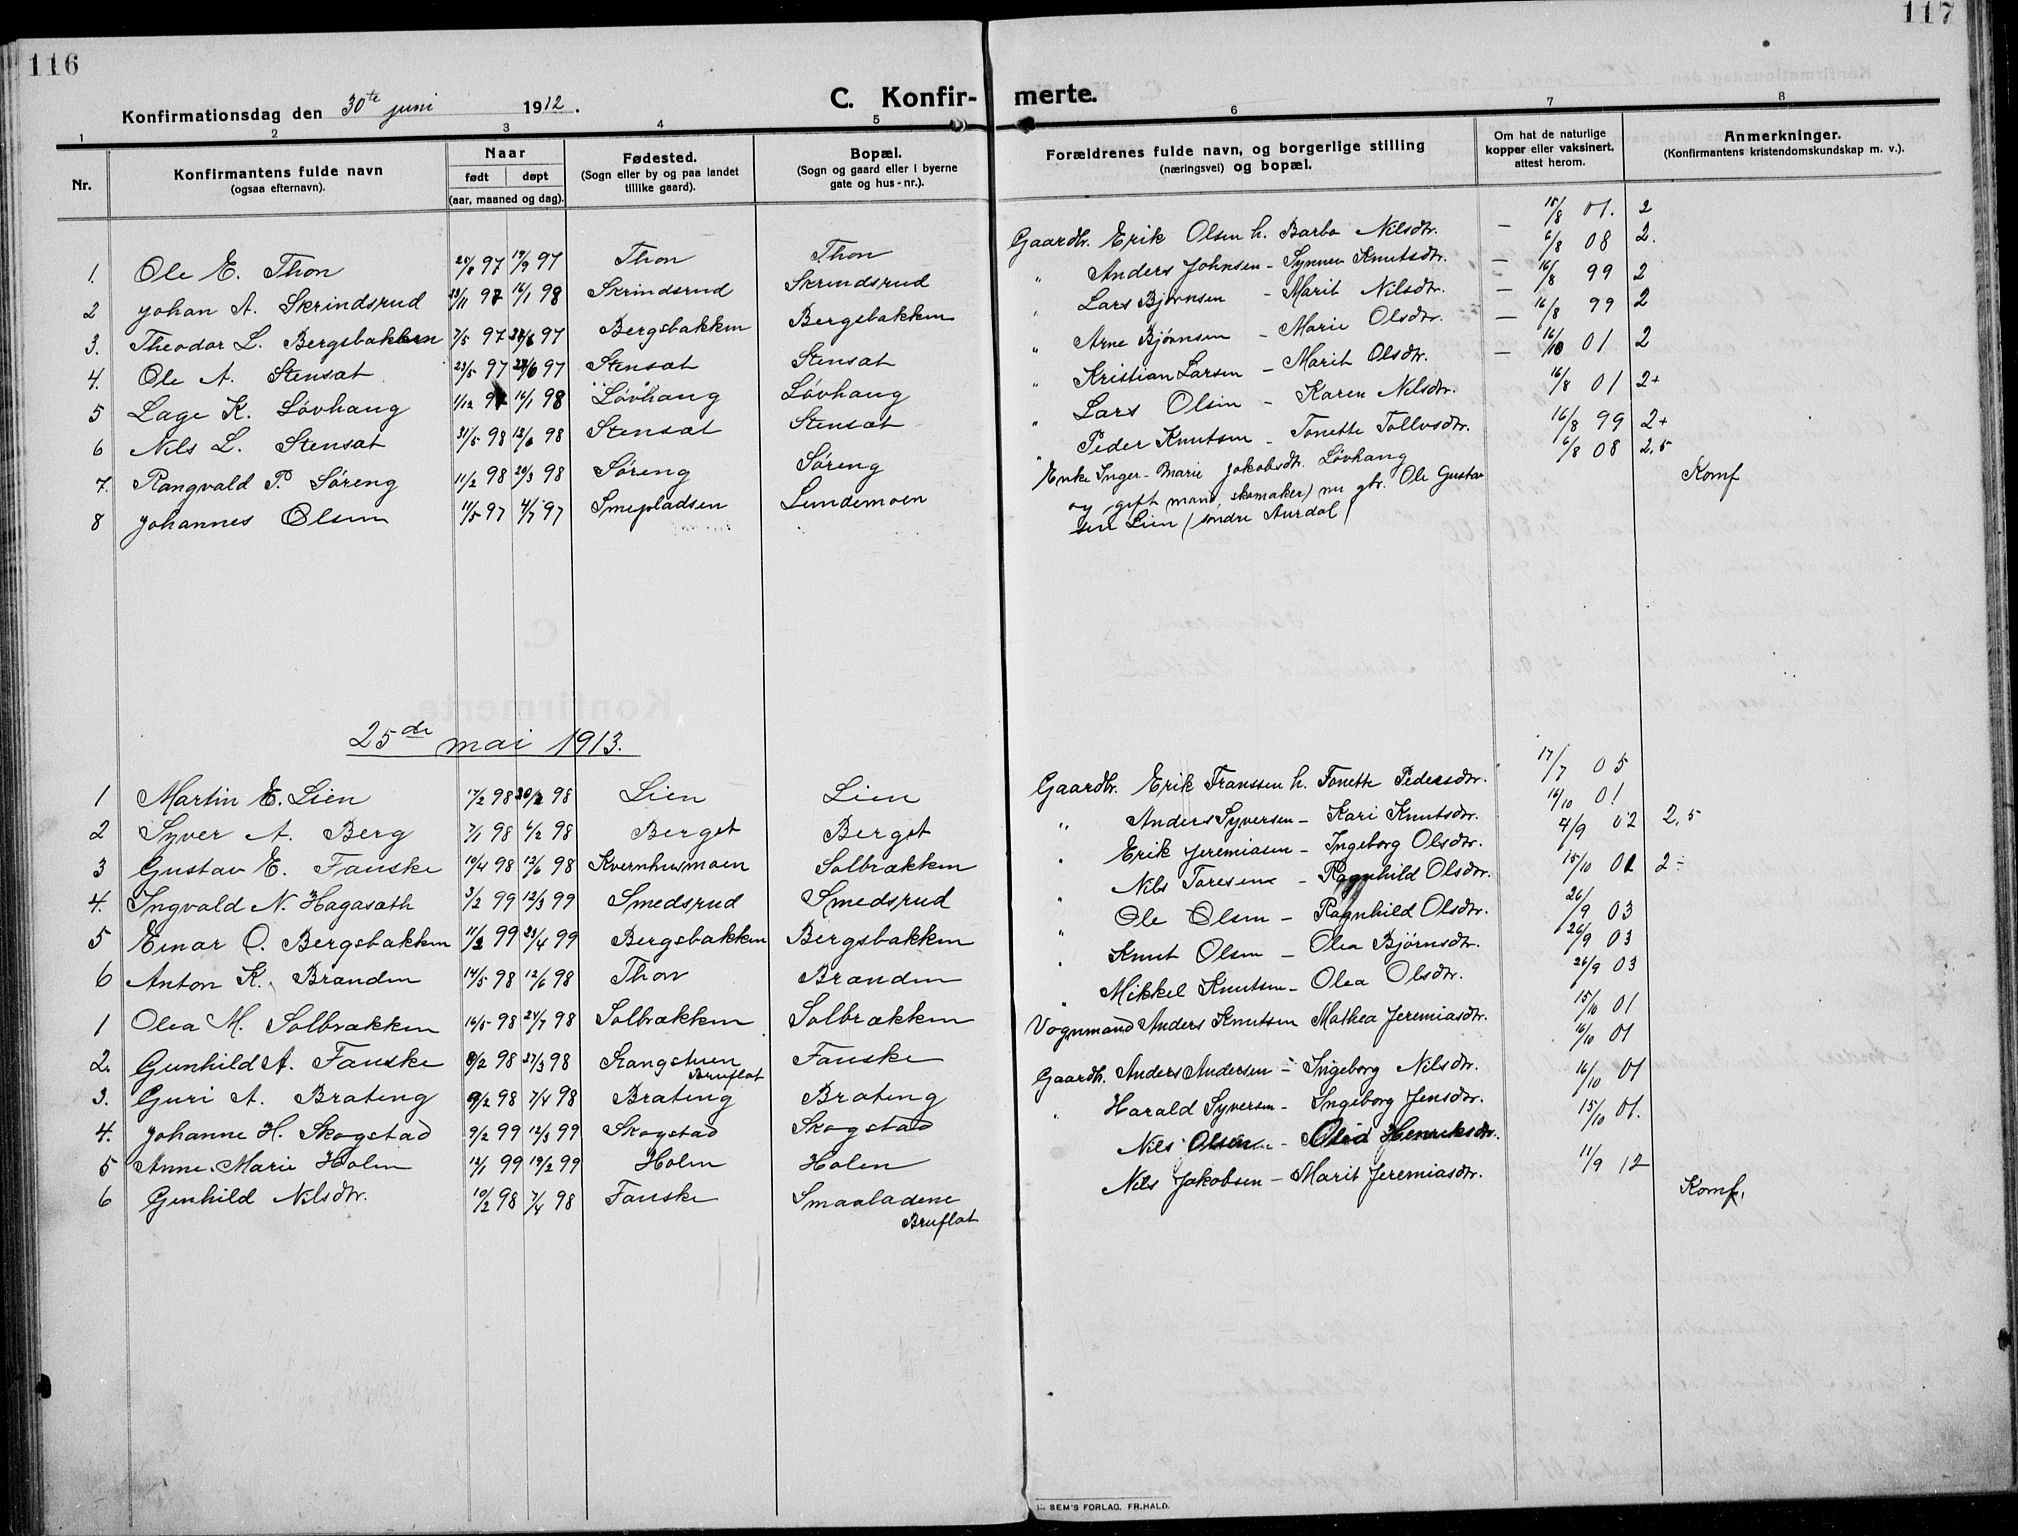 116
117
Konfirmationsdag den 30te juni 1912.
C. Konfir- merte.
1 2 3 4 5 6 7 8
Nr.
Konfirmantens fulde navn
(ogsaa efternavn).
Naar
født døpt
(aar, maaned og dag).
Fødested.
(Sogn eller by og paa landet
tillike gaard).
Bopæl.
(Sogn og gaard eller i byerne
gate og hus-nr.).
Forældrenes fulde navn, og borgerlige stilling
(næringsvei) og bopæl.
Om hat de naturlige
kopper eller vaksinert,
attest herom.
Anmerkninger.
(Konfirmantens kristendomskundskap m. v.).
1. Ole E. Thon 97 19/9 97 Thon Thon Gaardbr. Erik Olsen h. Barbo Nilsdtr. — 15/8 01. 2
2 Johan A. Skrindsrud 97 16/1 98 Skrindsrud Skrindsrud " Anders Johnsen - Synnev Knutsdtr. — 6/8 08 2.
3. Theodor L. Bergsbakken 7/5 97 97 Bergsbakken Bergsbakken " Lars Bjørnsen - Marit Nilsdtr. — 16/8 99 2
4. Ole A. Stensæt 23/5 97 27/6 97 Stensæt Stensæt " Arne Bjørnsen - Marie Olsdtr. — 16/8 99 2
5 Lage K. Løvhaug 1/12 97 16/1 98 Løvhaug Løvhaug " Kristian Larsen - Marit Olsdtr. — 16/10 01 2
6 Nils L. Stensæt 31/5 98 12/6 98 Stensæt Stensæt " Lars Olsen - Karen Nilsdtr. 16/8 01 2+
7. Rangvald P. Søreng 11/2 98 20/3 98 Søreng Søreng " Peder Knutsen - Tonette Tollvsdtr. 16/8 99 2+
8 Johannes Olsen 11/5 97 4/7 97 Smepladsen Lundemoen Enke Inger-Marie Jakobsdtr. Løvhaug 6/8 08 2,5 Komf
og gift mand, skomaker) nu gbr. Ole Gustav
sen Lien (søndre Aurdal)
25de mai 1913.
1 Martin E. Lien 17/2 98 98 Lien Lien Gaardbr. Erik Franssen h. Tonette Pedersdtr. 17/7 05
2 Syver A. Berg 7/1 98 6/2 98 Berget Berget " Anders Syversen - Kari Knutsdtr. 16/10 01
3 Gustav E. Fauske 10/4 98 12/6 98 Kvernhusmoen Solbrækken " Erik Jeremiasen - Ingeborg Olsdtr. 4/9 02 2,5
4. Ingvald N. Hagasæth 3/2 99 12/3 99 Smedsrud Smedsrud " Nils Toresen - Ragnhild Olsdtr. 15/10 01 2-
5 Einar O. Bergsbakken 11/2 99 23/4 99 Bergsbakken Bergsbakken " Ole Olsen - Ragnhild Olsdtr. 26/9 03
6 Anton K. Branden 14/5 98 12/6 98 Thon Branden " Knut Olsen - Olea Bjørnsdtr. 26/9 03
1 Olea M. Solbrækken 16/5 98 24/7 98 Solbrækken Solbrækken " Mikkel Knutsen - Olea Olsdtr. 26/9 03
2. Gunhild A. Fauske 8/2 98 27/3 98 Stangstuen Bruflat Fauske Vognmand Anders Knutsen Mathea Jeremiasdtr. 15/10 01
3. Guri A. Brateng 9/2 98 7/4 98 Brateng Brateng Gaardbr. Anders Andersen - Ingeborg Nilsdtr. 16/10 01
4. Johanne H. Skogstad 9/2 99 12/3 99 Skogstad Skogstad " Harald Syversen - Ingeborg Jensdtr. 16/10 01
5 Anne Marie Holen 12/1 99 19/2 99 Holen Holen Nils Olsen - Olea Henriksdtr. 15/10 01.
6 Gunhild Nilsdtr. 10/2 98 7/4 98 Fauske Smaaladene Bruflat Nils Jakobsen - Marit Jeremiasdtr. 11/9 12 Komf.
SEM'S FORLAG. FR.HALD.